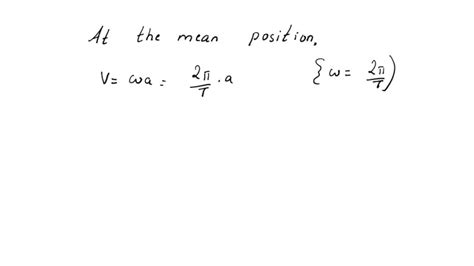 At the mean position.
V = ωa = 2π/T · a {ω = 2π/T)